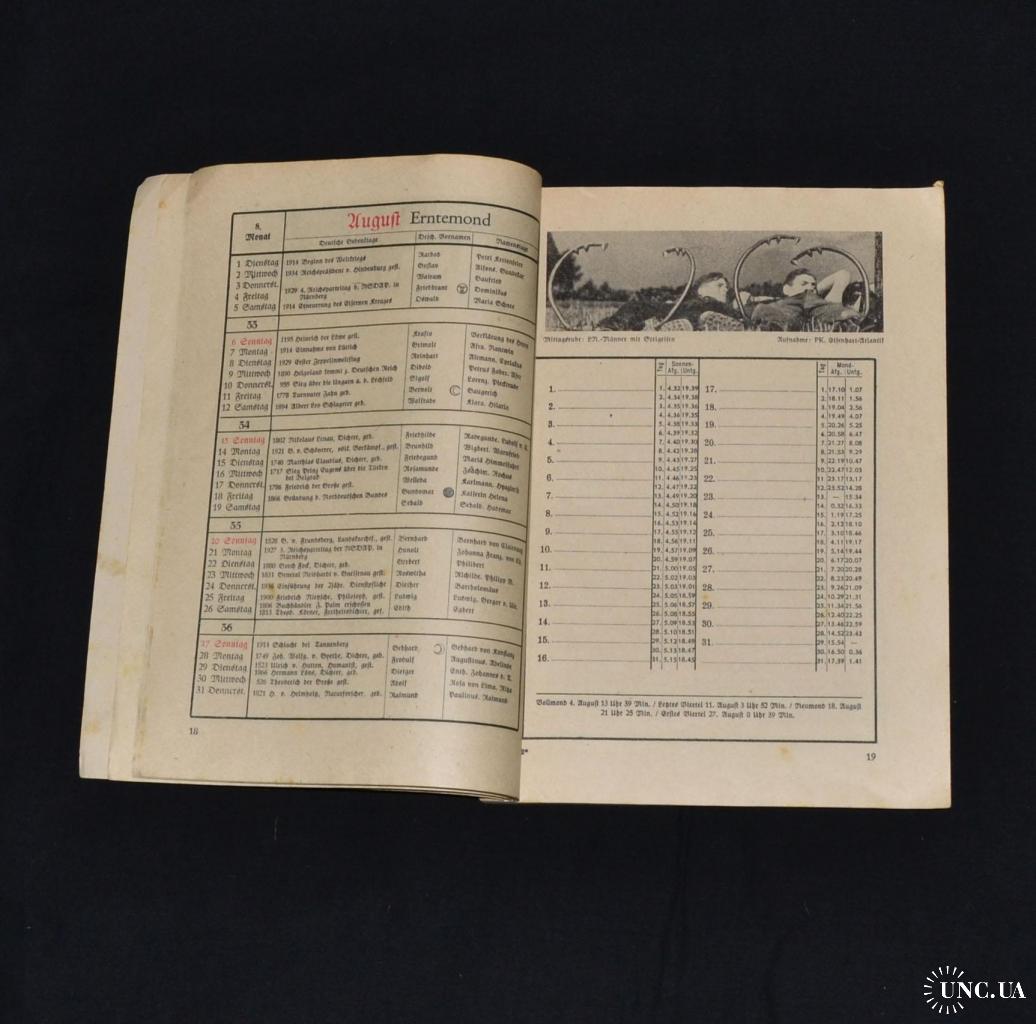 8. Monat
August Erntemond
Deutsche Gedenktage
Dtsch. Vornamen
Namenstage
1 Dienstag 1914 Beginn des Weltkriegs Ratbod Petri Kettenfeier
2 Mittwoch 1934 Reichspräsident v. Hindenburg gest. Gustav Alfons.
3 Donnerst. 1929 4. Reichsparteitag d. NSDAP. in
4 Freitag Nürnberg Friedbrant Dominikus
5 Samstag 1914 Erneuerung des Eisernen Kreuzes Oswald Maria Schnee
33
6 Sonntag 1195 Heinrich der Löwe gest. Verklärung des Herrn
7 Montag 1914 Einnahme von Lüttich Grimolt Afra.
8 Dienstag 1929 Erster Zeppelinweltflug Reinhart
9 Mittwoch 1890 Helgoland kommt z. Deutschen Reich Dibold Petrus Faber.
10 Donnerst. 955 Sieg über die Ungarn a. d. Lechfeld Sigolf Lorenz.
11 Freitag 1778 Turnvater Jahn geb.
12 Samstag 1894 Albert Leo Schlageter geb. Klara. Hilaria
34
13 Sonntag 1802 Nikolaus Lenau, Dichter, geb. Friedhilde
14 Montag 1921 G. v. Schönerer, völk. Vorkämpf., gest. Brunhild
15 Dienstag 1740 Matthias Claudius, Dichter, geb. Friedegund Mariä Himmelfahrt
16 Mittwoch 1717 Sieg Prinz Eugens über die Türken Rosamunde Joachim. Rochus
bei Belgrad
17 Donnerst. 1786 Friedrich der Große gest. Welleda
18 Freitag 1866 Gründung d. Norddeutschen Bundes Kaiserin Helena
19 Samstag Sebald Sebald.
35
20 Sonntag 1528 G. v. Frundsberg, Landsknechtf., gest. Bernhard Bernhard von Clairvaux
21 Montag 1927 3. Reichsparteitag der NSDAP. in Johanna Franz. von Ch.
Nürnberg
22 Dienstag 1880 Gorch Fock, Dichter, geb. Herbert Philibert
23 Mittwoch 1831 General Neithardt v. Gneisenau gest. Roswitha Richilde. Philipp B.
24 Donnerst. 1936 Einführung der 2jähr. Dienstpflicht Diether Bartholomäus
25 Freitag 1900 Friedrich Nietzsche, Philosoph, gest. Ludwig
26 Samstag 1806 Buchhändler J. Palm erschossen Edith Egbert
1813 Theod. Körner, Freiheitsdichter, gef.
36
27 Sonntag 1914 Schlacht bei Tannenberg Gebhard Gebhard von Konstanz
28 Montag 1749 Joh. Wolfg. v. Goethe, Dichter, geb. Augustinus. Adelinde
29 Dienstag 1523 Ulrich v. Hutten, Humanist, gest. Dietger Enth. Johannes d. T.
1866 Hermann Löns, Dichter, geb.
30 Mittwoch 526 Theoderich der Große gest. Adolf Rosa von Lima.
31 Donnerst. 1821 H. v. Helmholtz, Naturforscher, geb. Raimund Paulinus. Raimund
18
Mittagsruhe: LM.-Männer mit Steigeisen
Aufnahme: PK. Eisenhart-Atlantik
Tag Sonnen- Afg. Untg.
Tag Mond- Afg. Untg.
1. 1. 4.32 19.39 17. 1. 17.10 1.07
2. 2. 4.34 19.38 18. 2. 18.11 1.56
3. 3. 4.35 19.36 19. 3. 19.04 2.56
4. 4. 4.36 19.35 20. 4. 19.49 4.07
5. 5. 4.38 19.33 21. 5. 20.26 5.25
6. 6. 4.39 19.32 22. 6. 20.58 6.47
7. 7. 4.40 19.30 23. 7. 21.27 8.08
8. 8. 4.42 19.28 24. 8. 21.53 9.29
9. 9. 4.43 19.27 25. 9. 22.19 10.47
10. 10. 4.45 19.25 26. 10. 22.47 12.03
11. 11. 4.46 19.23 27. 11. 23.17 13.17
12. 12. 4.47 19.22 28. 12. 23.52 14.28
13. 13. 4.49 19.20 29. 13. — 15.34
14. 14. 4.50 19.18 30. 14. 0.32 16.33
15. 15. 4.52 19.16 31. 15. 1.19 17.25
16. 16. 4.53 19.14 16. 2.12 18.10
17. 4.55 19.12 17. 3.10 18.46
18. 4.56 19.11 18. 4.11 19.17
19. 4.57 19.09 19. 5.14 19.44
20. 4.59 19.07 20. 6.17 20.07
21. 5.00 19.05 21. 7.20 20.28
22. 5.02 19.03 22. 8.23 20.49
23. 5.03 19.01 23. 9.26 21.09
24. 5.05 18.59 24. 10.29 21.31
25. 5.06 18.57 25. 11.34 21.56
26. 5.08 18.55 26. 12.40 22.25
27. 5.09 18.53 27. 13.46 22.59
28. 5.10 18.51 28. 14.52 23.42
29. 5.12 18.49 29. 15.54 —
30. 5.13 18.47 30. 16.50 0.36
31. 5.15 18.45 31. 17.39 1.41
Vollmond 4. August 13 Uhr 39 Min. / Letztes Viertel 11. August 3 Uhr 52 Min. / Neumond 18. August
21 Uhr 25 Min. / Erstes Viertel 27. August 0 Uhr 39 Min.
2*
19
UNC.UA